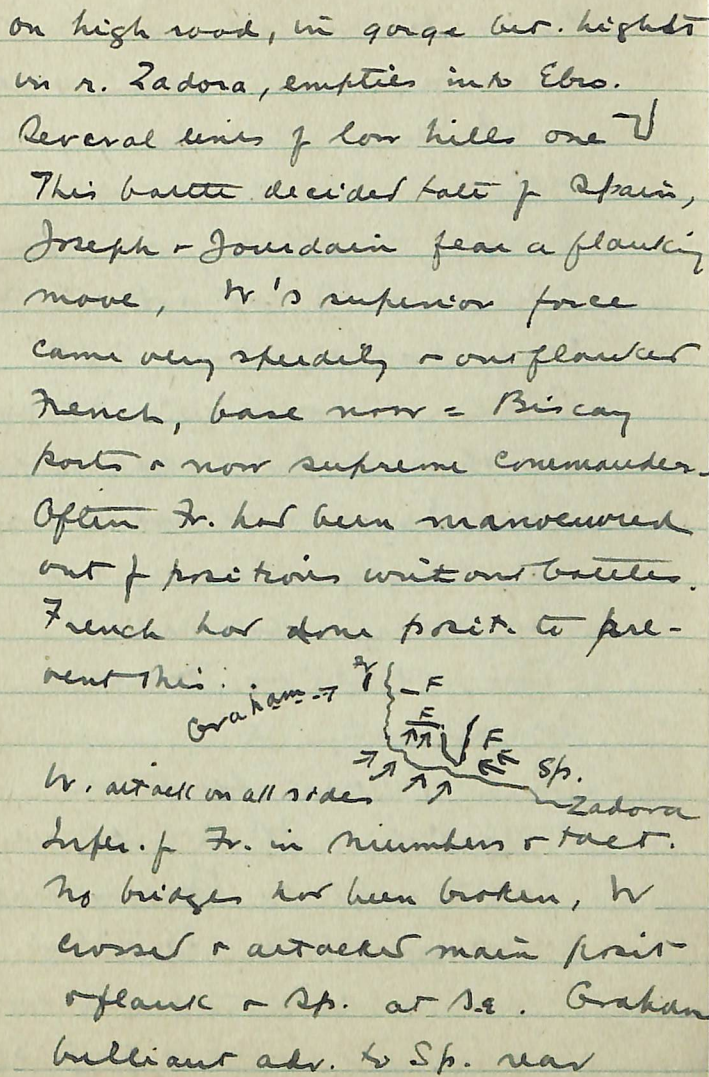 on high road, in gorge bet. hights
on r. Zadora, empties into Ebro.
Several lines of low hills one
This battle decided fate of Spain,
Joseph + Jourdain fear a flanking
move, W's superior force
came very speedily + outflanked
French, base now = Biscay
ports + now supreme commander.
Often Fr. had been manoeuvred
out of positions without battles.
French had done posit. to pre-
vent this.
Graham
F
F
F
Sp.
W. attack on all sides
Zadora
Infer. of Fr. in numbers + tact.
No bridges had been broken, W
crossed + attacked main posit
+ flank + Sp. at S.E. Graham
brilliant adv. to Sp. rear